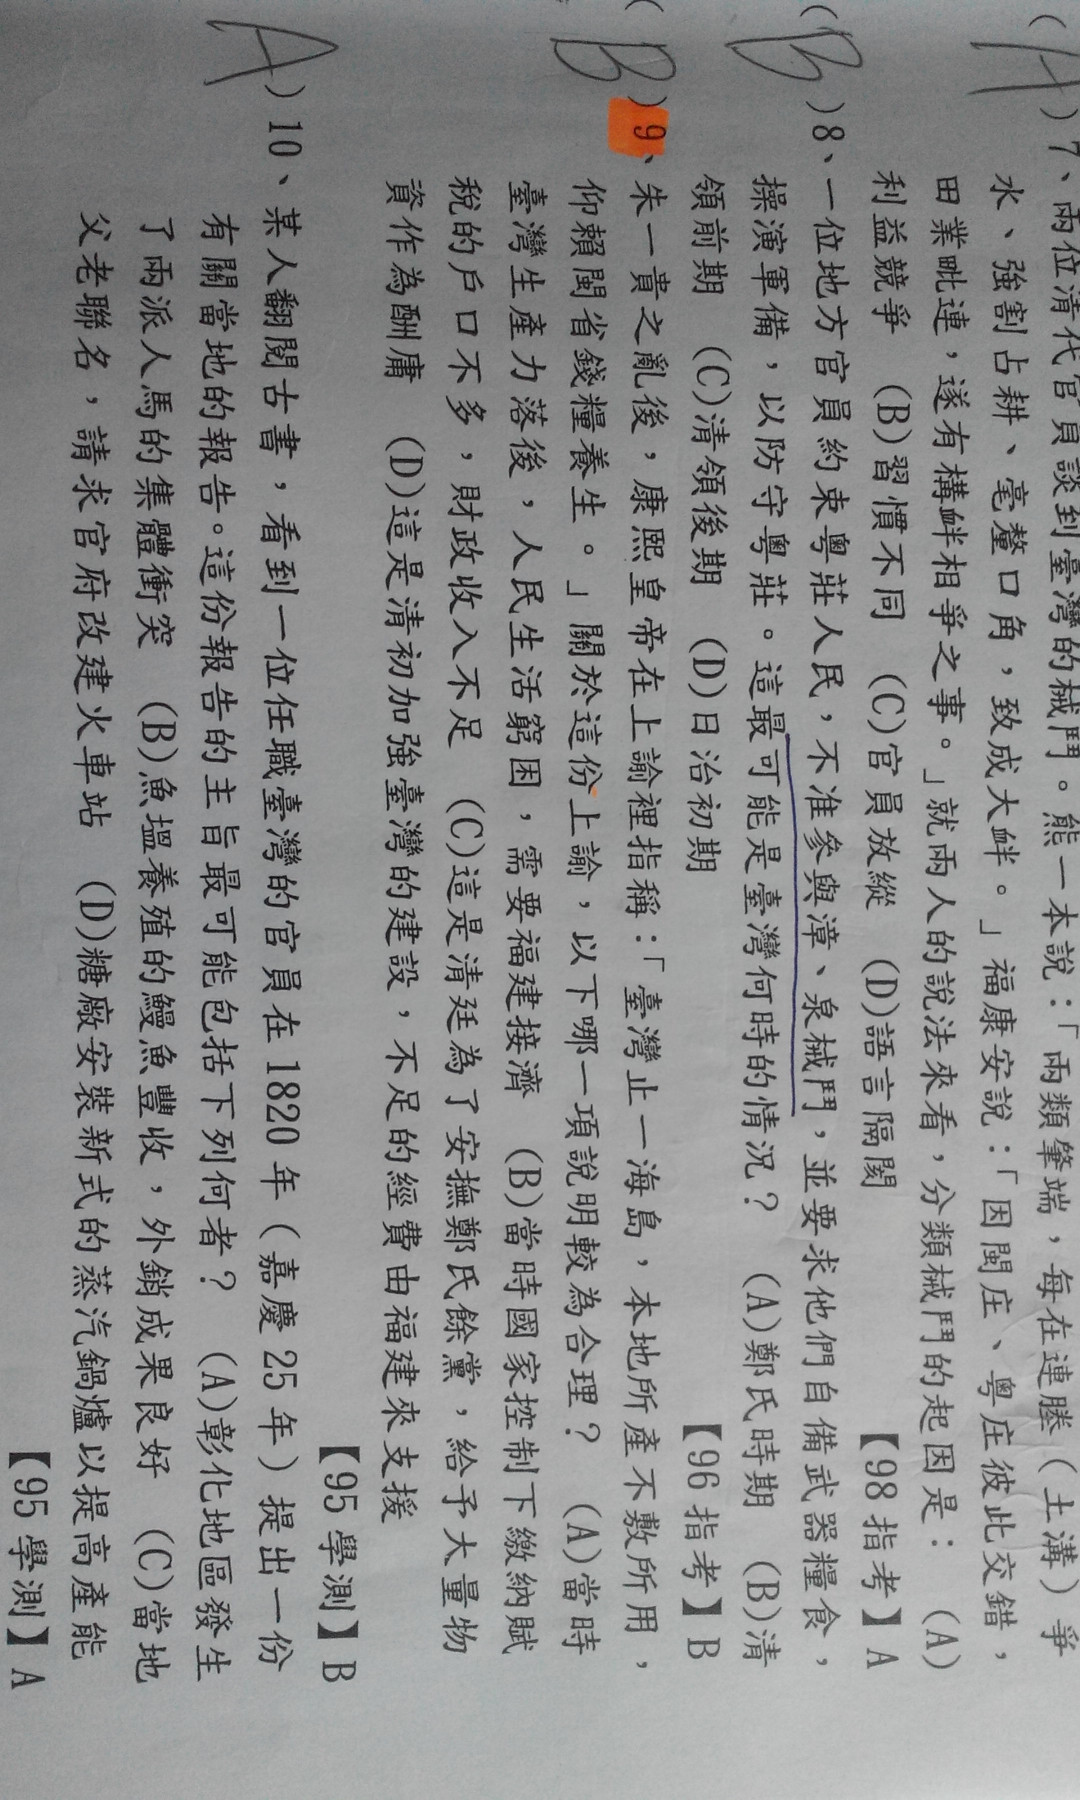 (A)7、兩位清代官員談到臺灣的械鬥。熊一本說：「兩類肇端，每在連塍（土溝）爭
水、強割占耕、毫釐口角，致成大衅。」福康安說：「因閩庄、粵庄彼此交錯，
田業毗連，遂有構衅相爭之事。」就兩人的說法來看，分類械鬥的起因是： (A)
利益競爭 (B)習慣不同 (C)官員放縱 (D)語言隔閡 【98 指考】A
(B)8、一位地方官員約束粵莊人民，不准參與漳、泉械鬥，並要求他們自備武器糧食，
操演軍備，以防守粵莊。這最可能是臺灣何時的情況？ (A)鄭氏時期 (B)清
領前期 (C)清領後期 (D)日治初期 【96 指考】B
(B)9、朱一貴之亂後，康熙皇帝在上諭裡指稱：「臺灣止一海島，本地所產不敷所用，
仰賴閩省錢糧養生。」關於這份上諭，以下哪一項說明較為合理？ (A)當時
臺灣生產力落後，人民生活窮困，需要福建接濟 (B)當時國家控制下繳納賦
稅的戶口不多，財政收入不足 (C)這是清廷為了安撫鄭氏餘黨，給予大量物
資作為酬庸 (D)這是清初加強臺灣的建設，不足的經費由福建來支援
【95 學測】B
A)10、某人翻閱古書，看到一位任職臺灣的官員在 1820 年（嘉慶 25 年）提出一份
有關當地的報告。這份報告的主旨最可能包括下列何者？ (A)彰化地區發生
了兩派人馬的集體衝突 (B)魚塭養殖的鰻魚豐收，外銷成果良好 (C)當地
父老聯名，請求官府改建火車站 (D)糖廠安裝新式的蒸汽鍋爐以提高產能
【95 學測】A